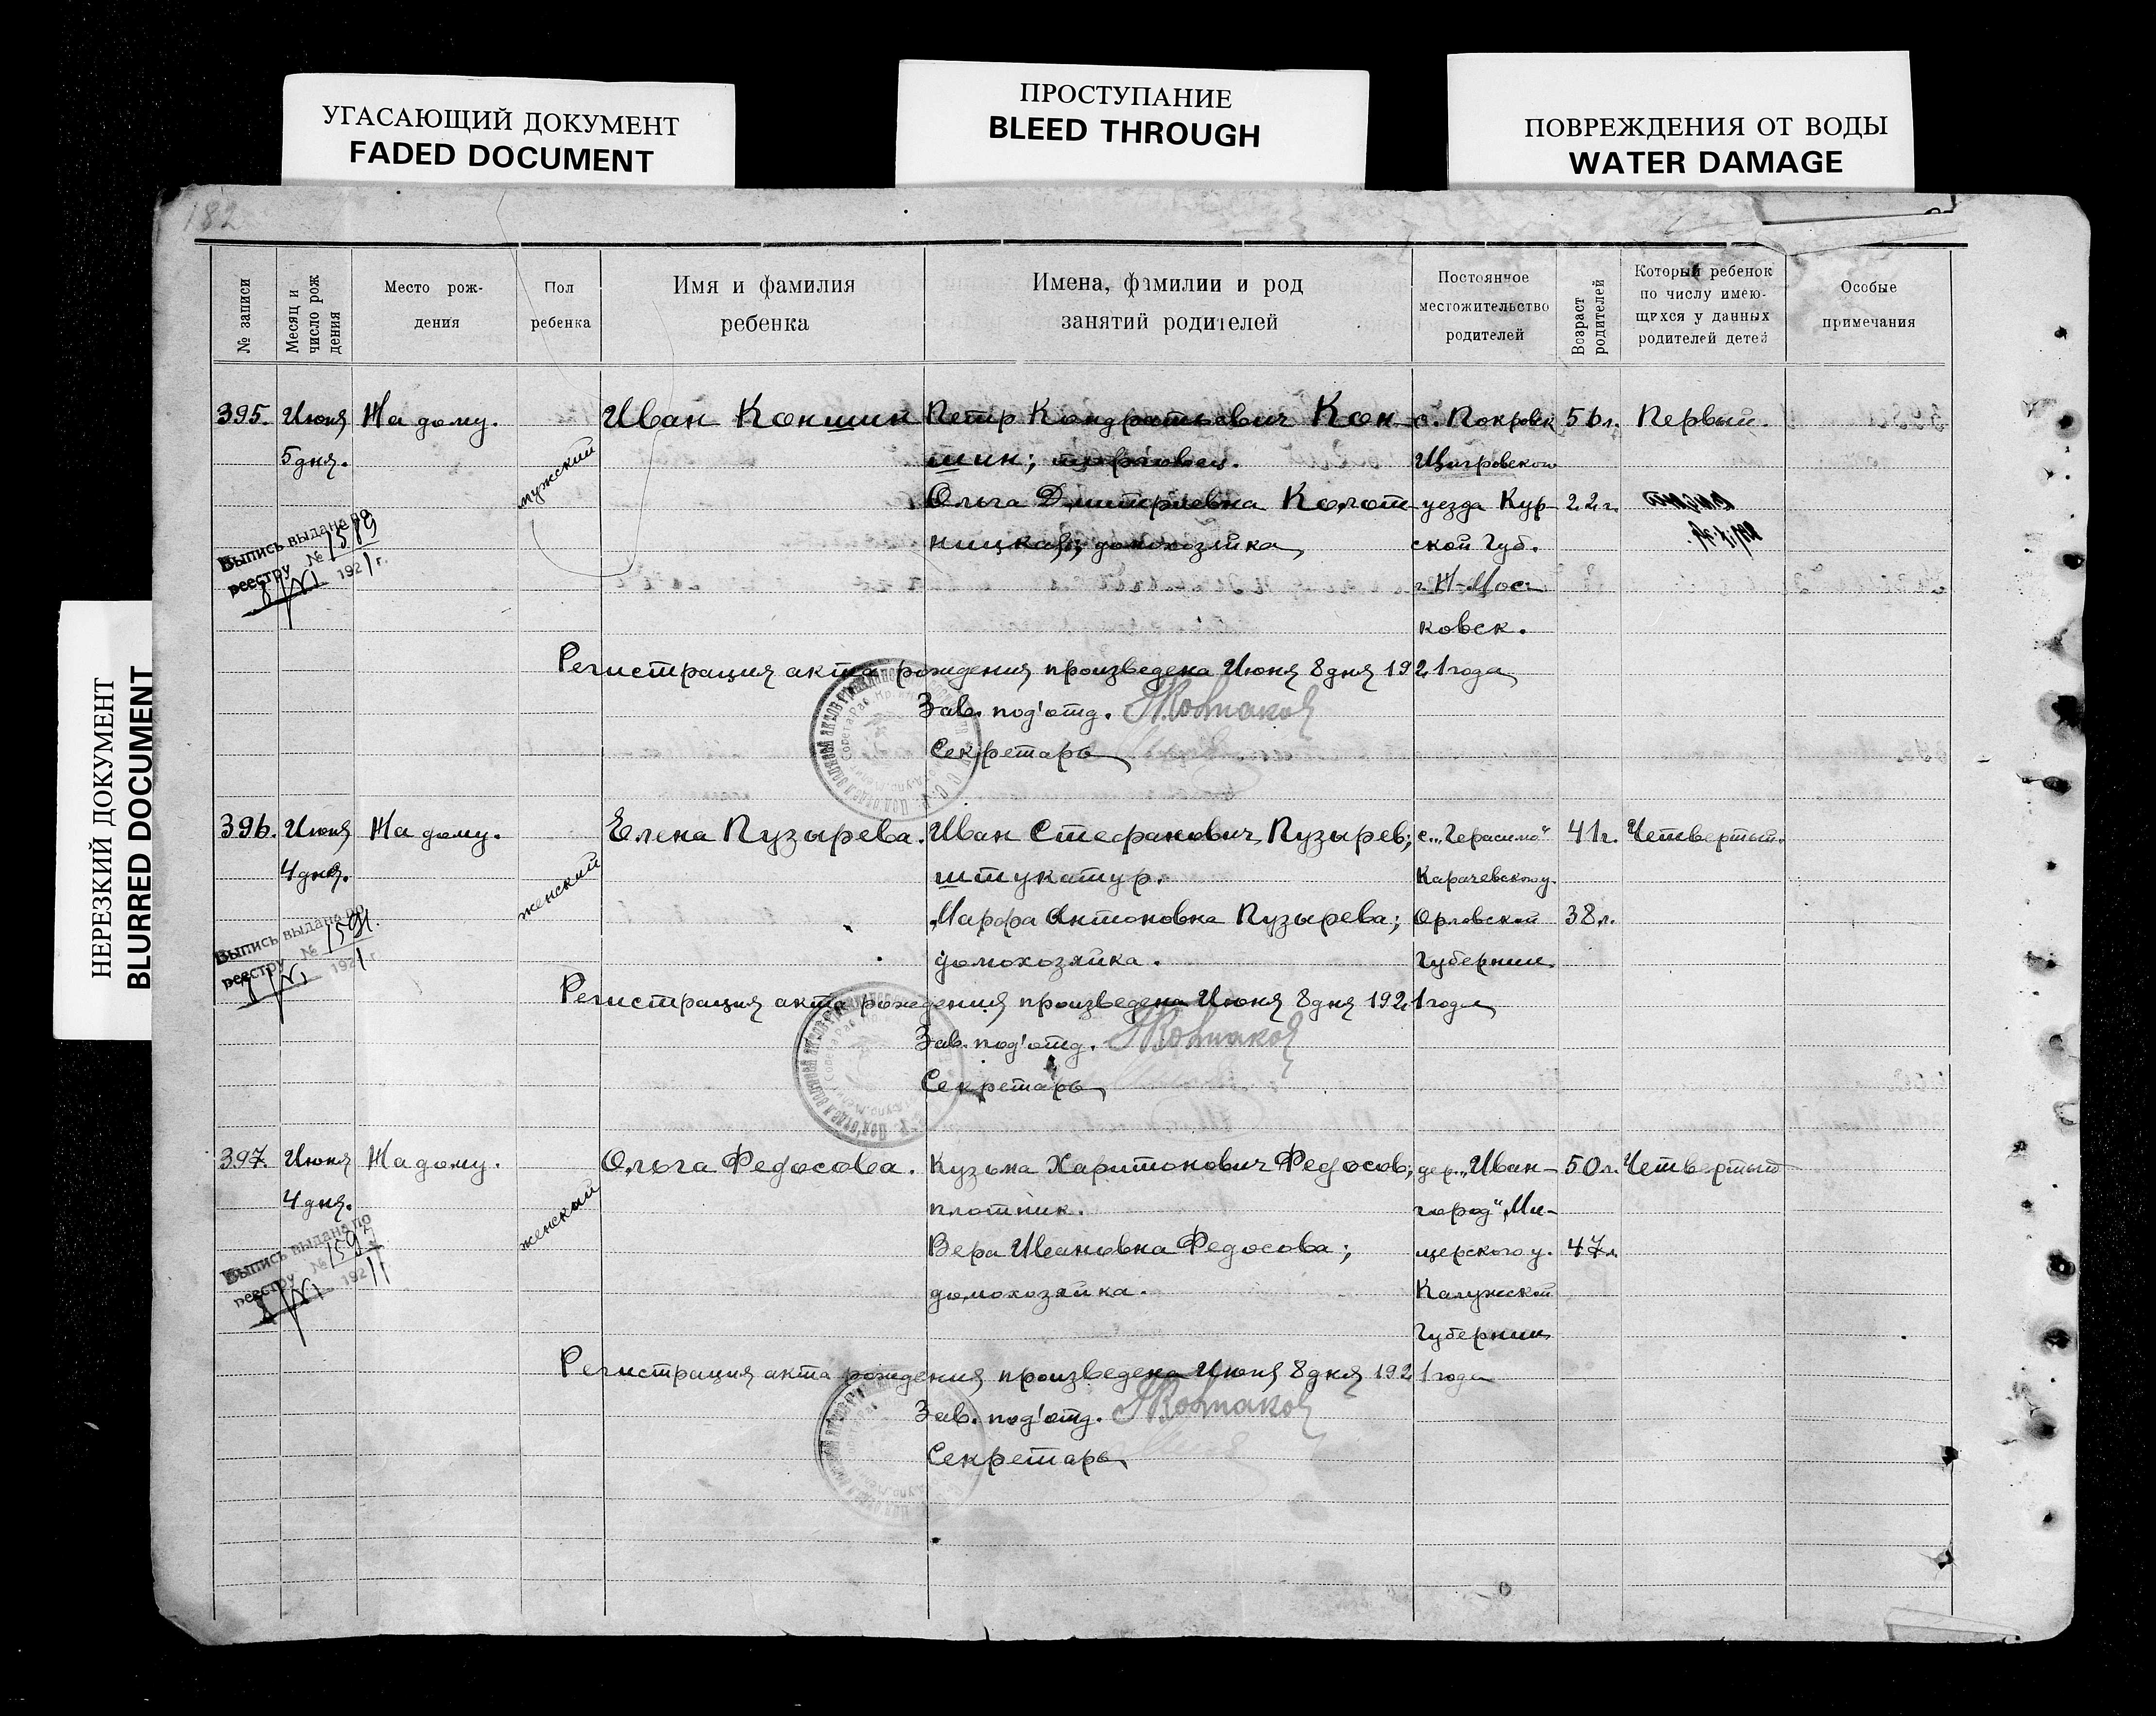 УГАСАЮЩИЙ ДОКУМЕНТ
FADED DOCUMENT
ПРОСТУПАНИЕ
BLEED THROUGH
ПОВРЕЖДЕНИЯ ОТ ВОДЫ
WATER DAMAGE
НЕРЕЗКИЙ ДОКУМЕНТ
BLURRED DOCUMENT
182
№ записи
Месяц и число рож дения
Место рож-
дения
Пол
ребенка
Имя и фамилия
ребенка
Имена, фамилии и род
занятий родителей
Постоянное
местожительство
родителей
Возраст родителей
Который ребенок
по числу имею-
щихся у данных
родителей детей
Особые
примечания
395. Июня На дому. мужский Иван Кокшин Петр Кондратьевич Кок- с. Покровск 56 л. Первый.
5 дня. шин; Щигровского
Ольга Дмитриевна уезда Кур- 22 г.
домохозяйка, ской Губ.
Выпись выдана по
реестру № 1589
1921 г.
г. Н-Мос-
ковск.
Регистрация акта рождения произведена Июня 8 дня 1921 года
Зав. под'отд.
Секретарь
396. Июня На дому. женский Елена Пузырева. Иван Стефанович Пузырев; с. „Герасимо" 41 г. Четвертый.
4 дня. штукатур. Карачевского у.
Марфа Антоновна Пузырева; Орловской 38 л.
домохозяйка. Губернии.
Выпись выдана по
реестру № 1591.
1921 г.
Регистрация акта рождения произведена Июня 8 дня 1921 года
Зав. под'отд.
Секретарь
397. Июня На дому. женский Ольга Федосова. Кузьма Харитонович Федосов; дер. „Иван- 50 л. Четвертый
4 дня. плотник. город" Ми-
Вера Ивановна Федосова; щерского у. 47 л.
домохозяйка. Калужской
Губернии.
Выпись выдана по
реестру № 1592
1921 г.
Регистрация акта рождения произведена Июня 8 дня 1921 года
Зав. под'отд.
Секретарь